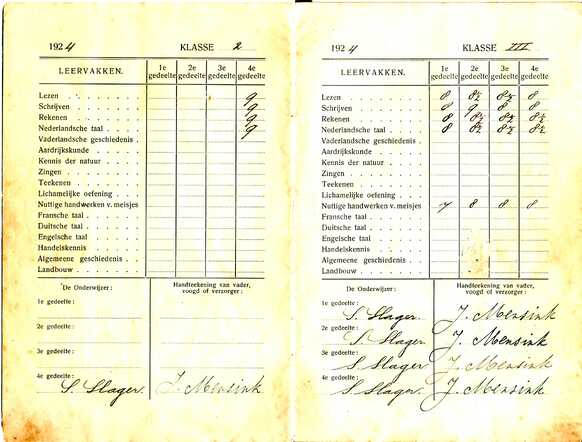 1924 KLASSE 2
LEERVAKKEN. 1e gedeelte 2e gedeelte 3e gedeelte 4e gedeelte
Lezen 9
Schrijven 9
Rekenen 9
Nederlandsche taal 9
Vaderlandsche geschiedenis
Aardrijkskunde
Kennis der natuur
Zingen
Teekenen
Lichamelijke oefening
Nuttige handwerken v. meisjes
Fransche taal
Duitsche taal
Engelsche taal
Handelskennis
Algemeene geschiedenis
Landbouw
De Onderwijzer: Handteekening van vader, voogd of verzorger:
1e gedeelte:
2e gedeelte:
3e gedeelte:
4e gedeelte: S. Slager. J. Mensink
1924 KLASSE III
LEERVAKKEN. 1e gedeelte 2e gedeelte 3e gedeelte 4e gedeelte
Lezen 8 8½ 8½ 8
Schrijven 8 9 8 8
Rekenen 8 8½ 8½ 8½
Nederlandsche taal 8 8½ 8½ 8½
Vaderlandsche geschiedenis
Aardrijkskunde
Kennis der natuur
Zingen
Teekenen
Lichamelijke oefening
Nuttige handwerken v. meisjes 7 8 8 8
Fransche taal
Duitsche taal
Engelsche taal
Handelskennis
Algemeene geschiedenis
Landbouw
De Onderwijzer: Handteekening van vader, voogd of verzorger:
1e gedeelte: S. Slager. J. Mensink
2e gedeelte: S. Slager J. Mensink
3e gedeelte: S. Slager J. Mensink
4e gedeelte: S. Slager. J. Mensink